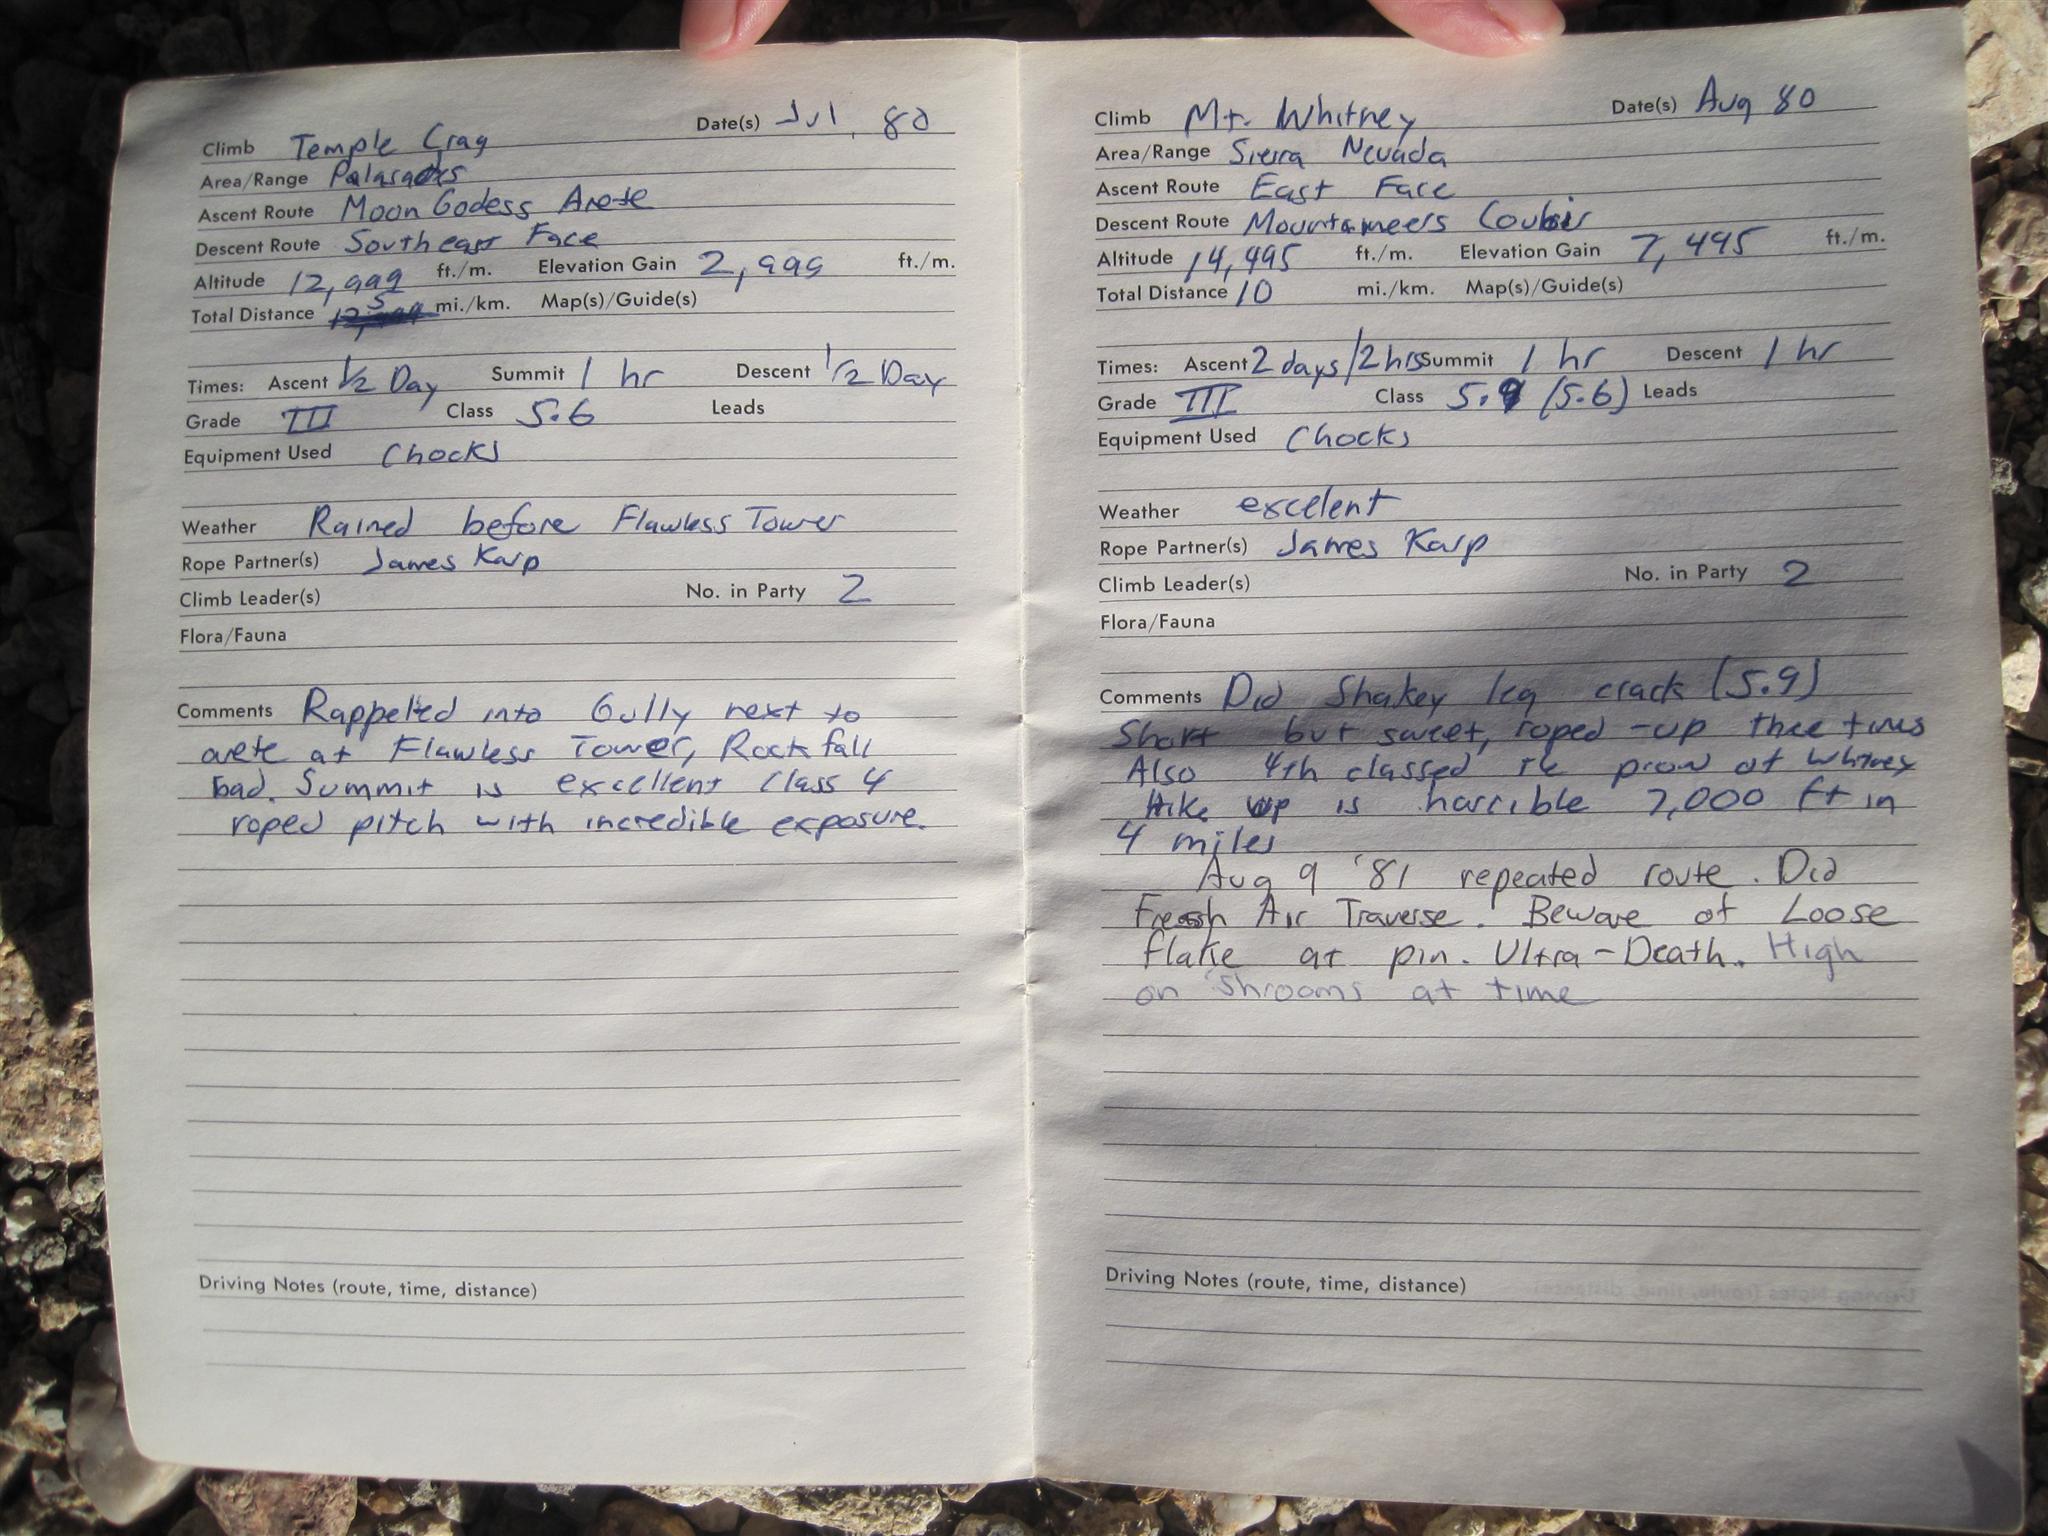 Climb Temple Crag Date(s) Jul, 80
Area/Range Palasades
Ascent Route Moon Godess Arete
Descent Route Southeast Face
Altitude 12,999 ft./m. Elevation Gain 2,999 ft./m.
Total Distance 5 mi./km. Map(s)/Guide(s)
Times: Ascent 1/2 Day Summit 1 hr Descent 1/2 Day
Grade III Class 5.6 Leads
Equipment Used Chocks
Weather Rained before Flawless Tower
Rope Partner(s) James Karp
Climb Leader(s) No. in Party 2
Flora/Fauna
Comments Rappelled into Gully next to
arete at Flawless Tower, Rock fall
bad. Summit is excellent Class 4
roped pitch with incredible exposure.
Driving Notes (route, time, distance)
Climb Mt. Whitney Date(s) Aug 80
Area/Range Sierra Nevada
Ascent Route East Face
Descent Route Mountameers Couloir
Altitude 14,495 ft./m. Elevation Gain 7,495 ft./m.
Total Distance 10 mi./km. Map(s)/Guide(s)
Times: Ascent 2 days/2 hrs Summit 1 hr Descent 1 hr
Grade III Class 5.9 (5.6) Leads
Equipment Used Chocks
Weather excelent
Rope Partner(s) James Karp
Climb Leader(s) No. in Party 2
Flora/Fauna
Comments Did Shakey leg crack (5.9)
Short but sweet, roped-up three times
Also 4th classed the prow of Whitney
Hike up is harrible 7,000 ft in
4 miles
Aug 9 '81 repeated route. Did
Fresh Air Traverse. Beware of Loose
flake at pin. Ultra-Death. High
on Shrooms at time
Driving Notes (route, time, distance)